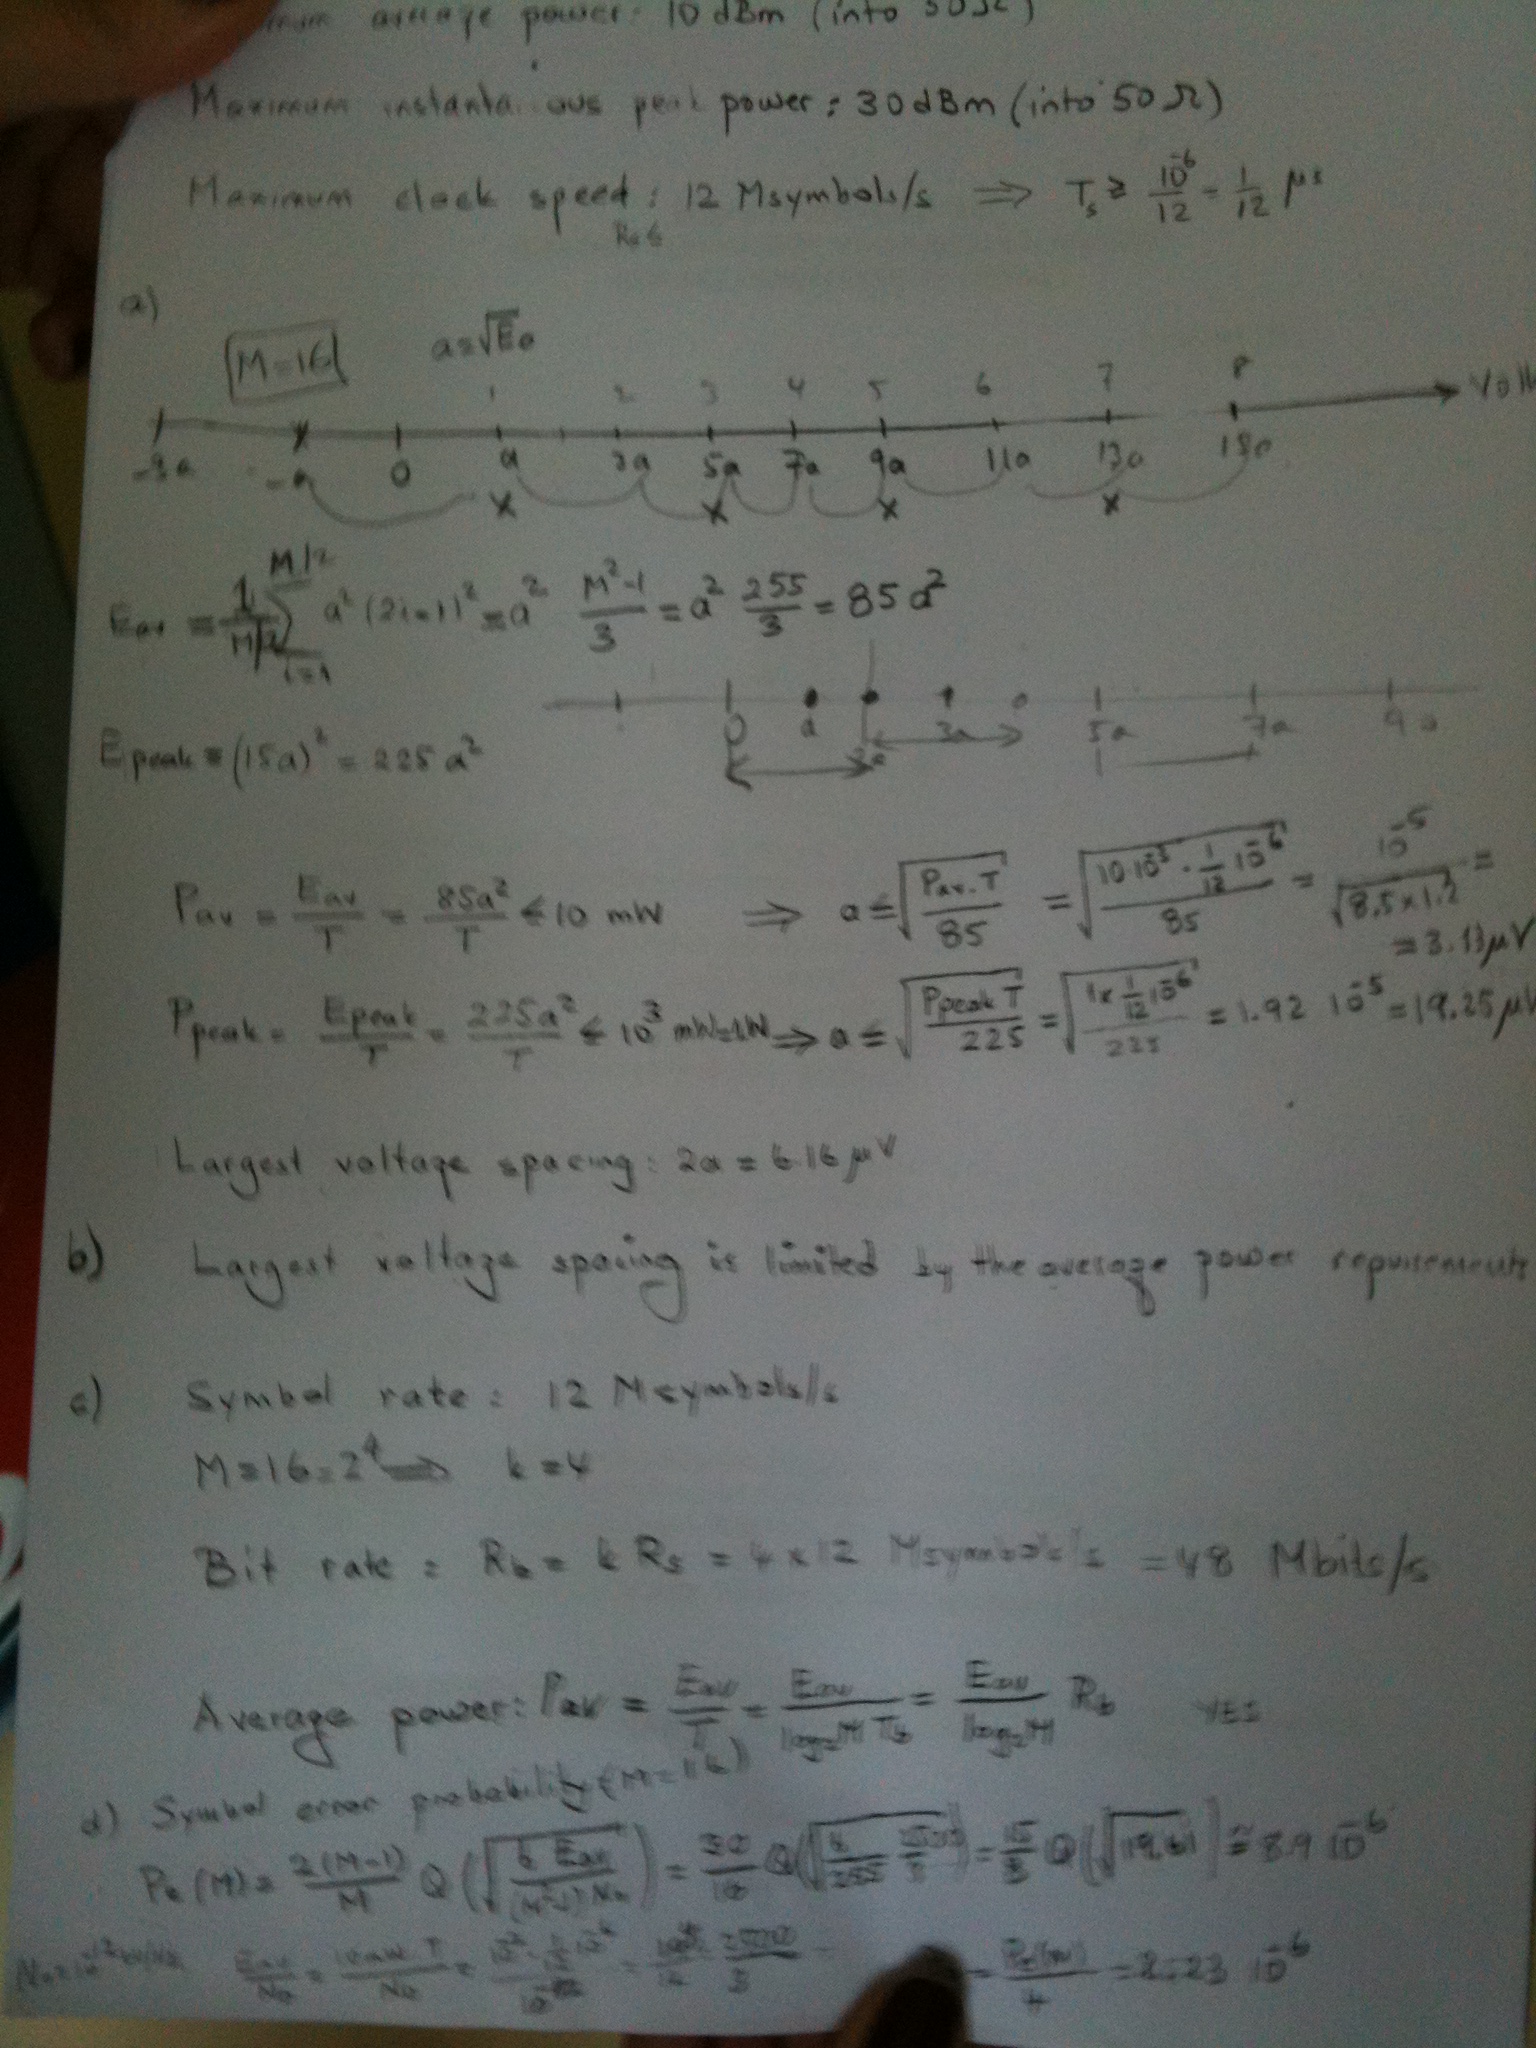 average power: 10 dBm (into 50Ω)
Maximum instanta ous peak power: 30 dBm (into 50 Ω)
Maximum clock speed: 12 Msymbols/s ⇒ Ts ≥ 10^-6/12 = 1/12 μs
a)
M=16 a=√E0
1 2 3 4 5 6 7 8
-3a -a 0 a 3a 5a 7a 9a 11a 13a 15a
Eav = 1/(M/2) Σ_{i=1}^{M/2} a² (2i-1)² = a² (M²-1)/3 = a² 255/3 = 85 a²
0 a 2a 3a 5a 7a 9a
Epeak = (15a)² = 225 a²
Pav = Eav/T = 85a²/T ≤ 10 mW ⇒ a ≤ √(Pav.T/85) = √(10·10^-3 · 1/12 10^-6 / 85) = 10^-5/√(8.5×1.2) =
= 3.13 μV
Ppeak = Epeak/T = 225a²/T ≤ 10^3 mW=1W ⇒ a ≤ √(Ppeak T/225) = √(1x 1/12 10^-6 / 225) = 1.92 10^-5 = 19.25 μV
Largest voltage spacing: 2a = 6.16 μV
b) Largest voltage spacing is limited by the average power requirements
c) Symbol rate: 12 Msymbols/s
M=16=2^4 ⇒ k=4
Bit rate: Rb = k Rs = 4 x 12 Msymbols/s = 48 Mbits/s
Average power: Pav = Eav/T = Eav/(log2M Tb) = Eav/log2M Rb YES
d) Symbol error probability (M=16)
Pe (M) = 2(M-1)/M Q(√(6 Eav/((M²-1) No))) = 30/16 Q(√(6/255 )) = 15/8 Q(√19.61) ≅ 8.9 10^-6
Eav/No = Pav T/No = = 2.23 10^-6